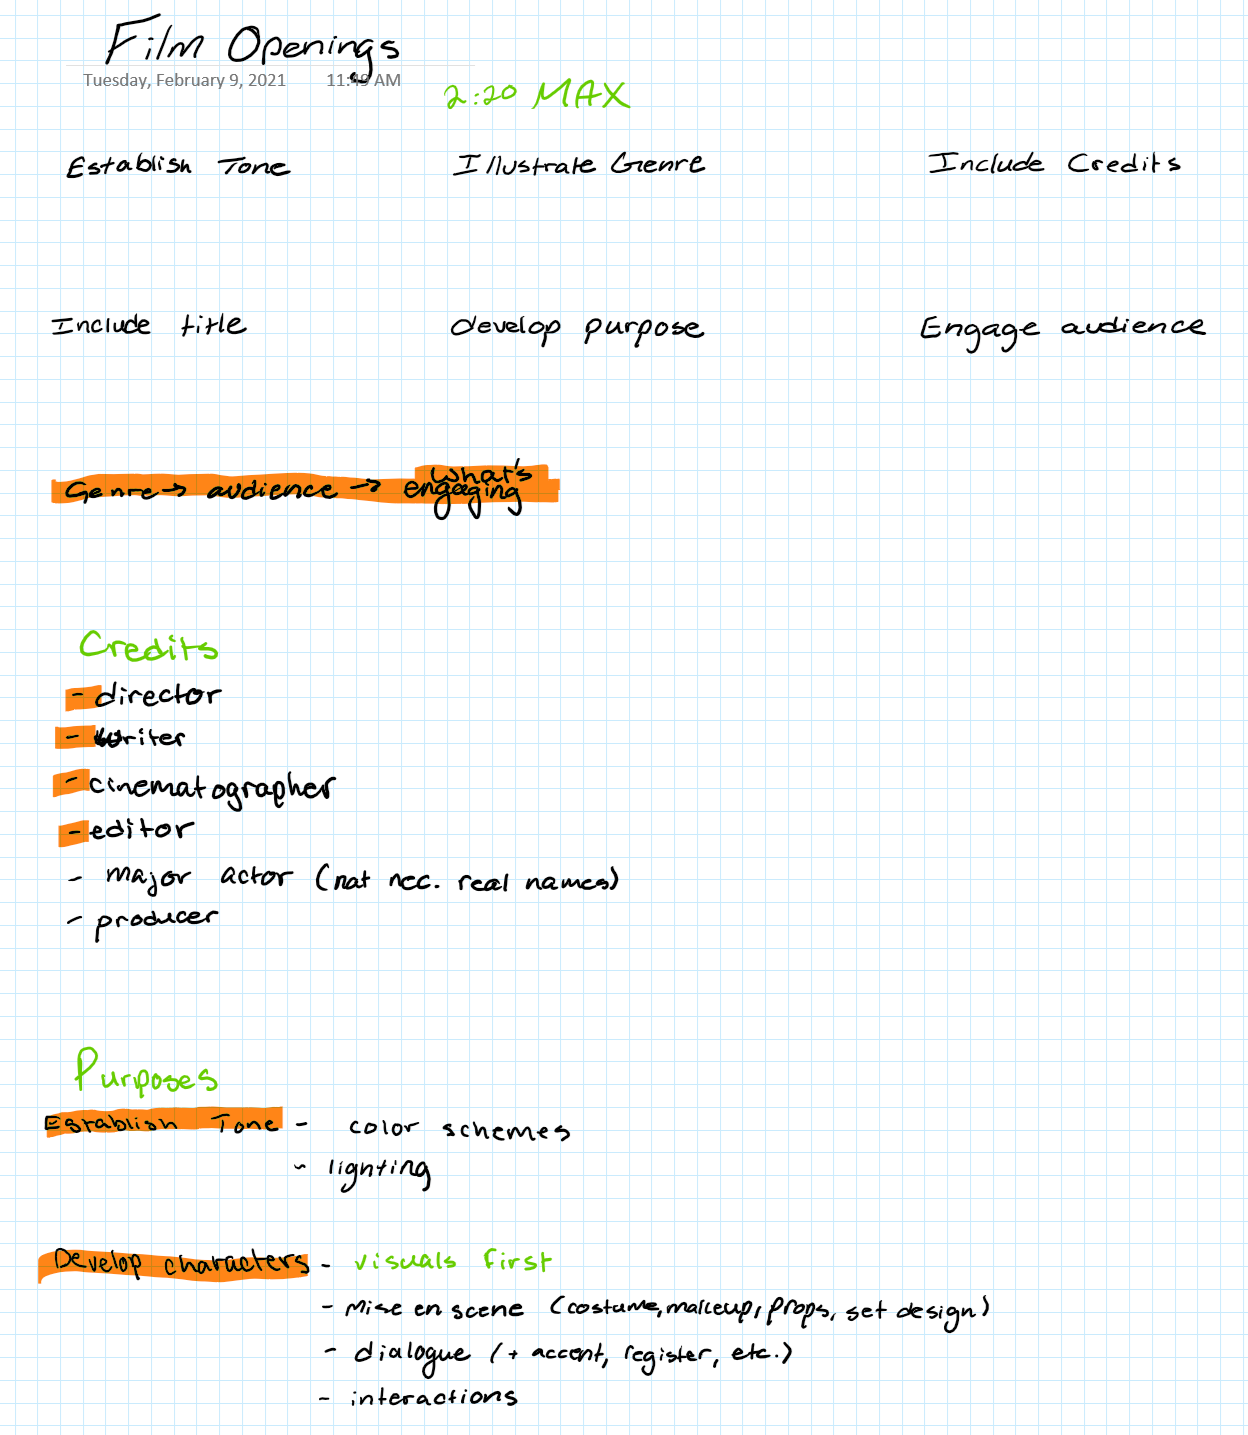 Film Openings
Tuesday, February 9, 2021 11:49 AM
2:20 MAX
Establish Tone Illustrate Genre Include Credits
Include title develop purpose Engage audience
Genre → audience → what's engaging
Credits
- director
- writer
- cinematographer
- editor
- major actor (not nec. real names)
- producer
Purposes
Establish Tone - color schemes
- lighting
Develop characters - visuals first
- mise en scene (costume, makeup, props, set design)
- dialogue (+ accent, register, etc.)
- interactions